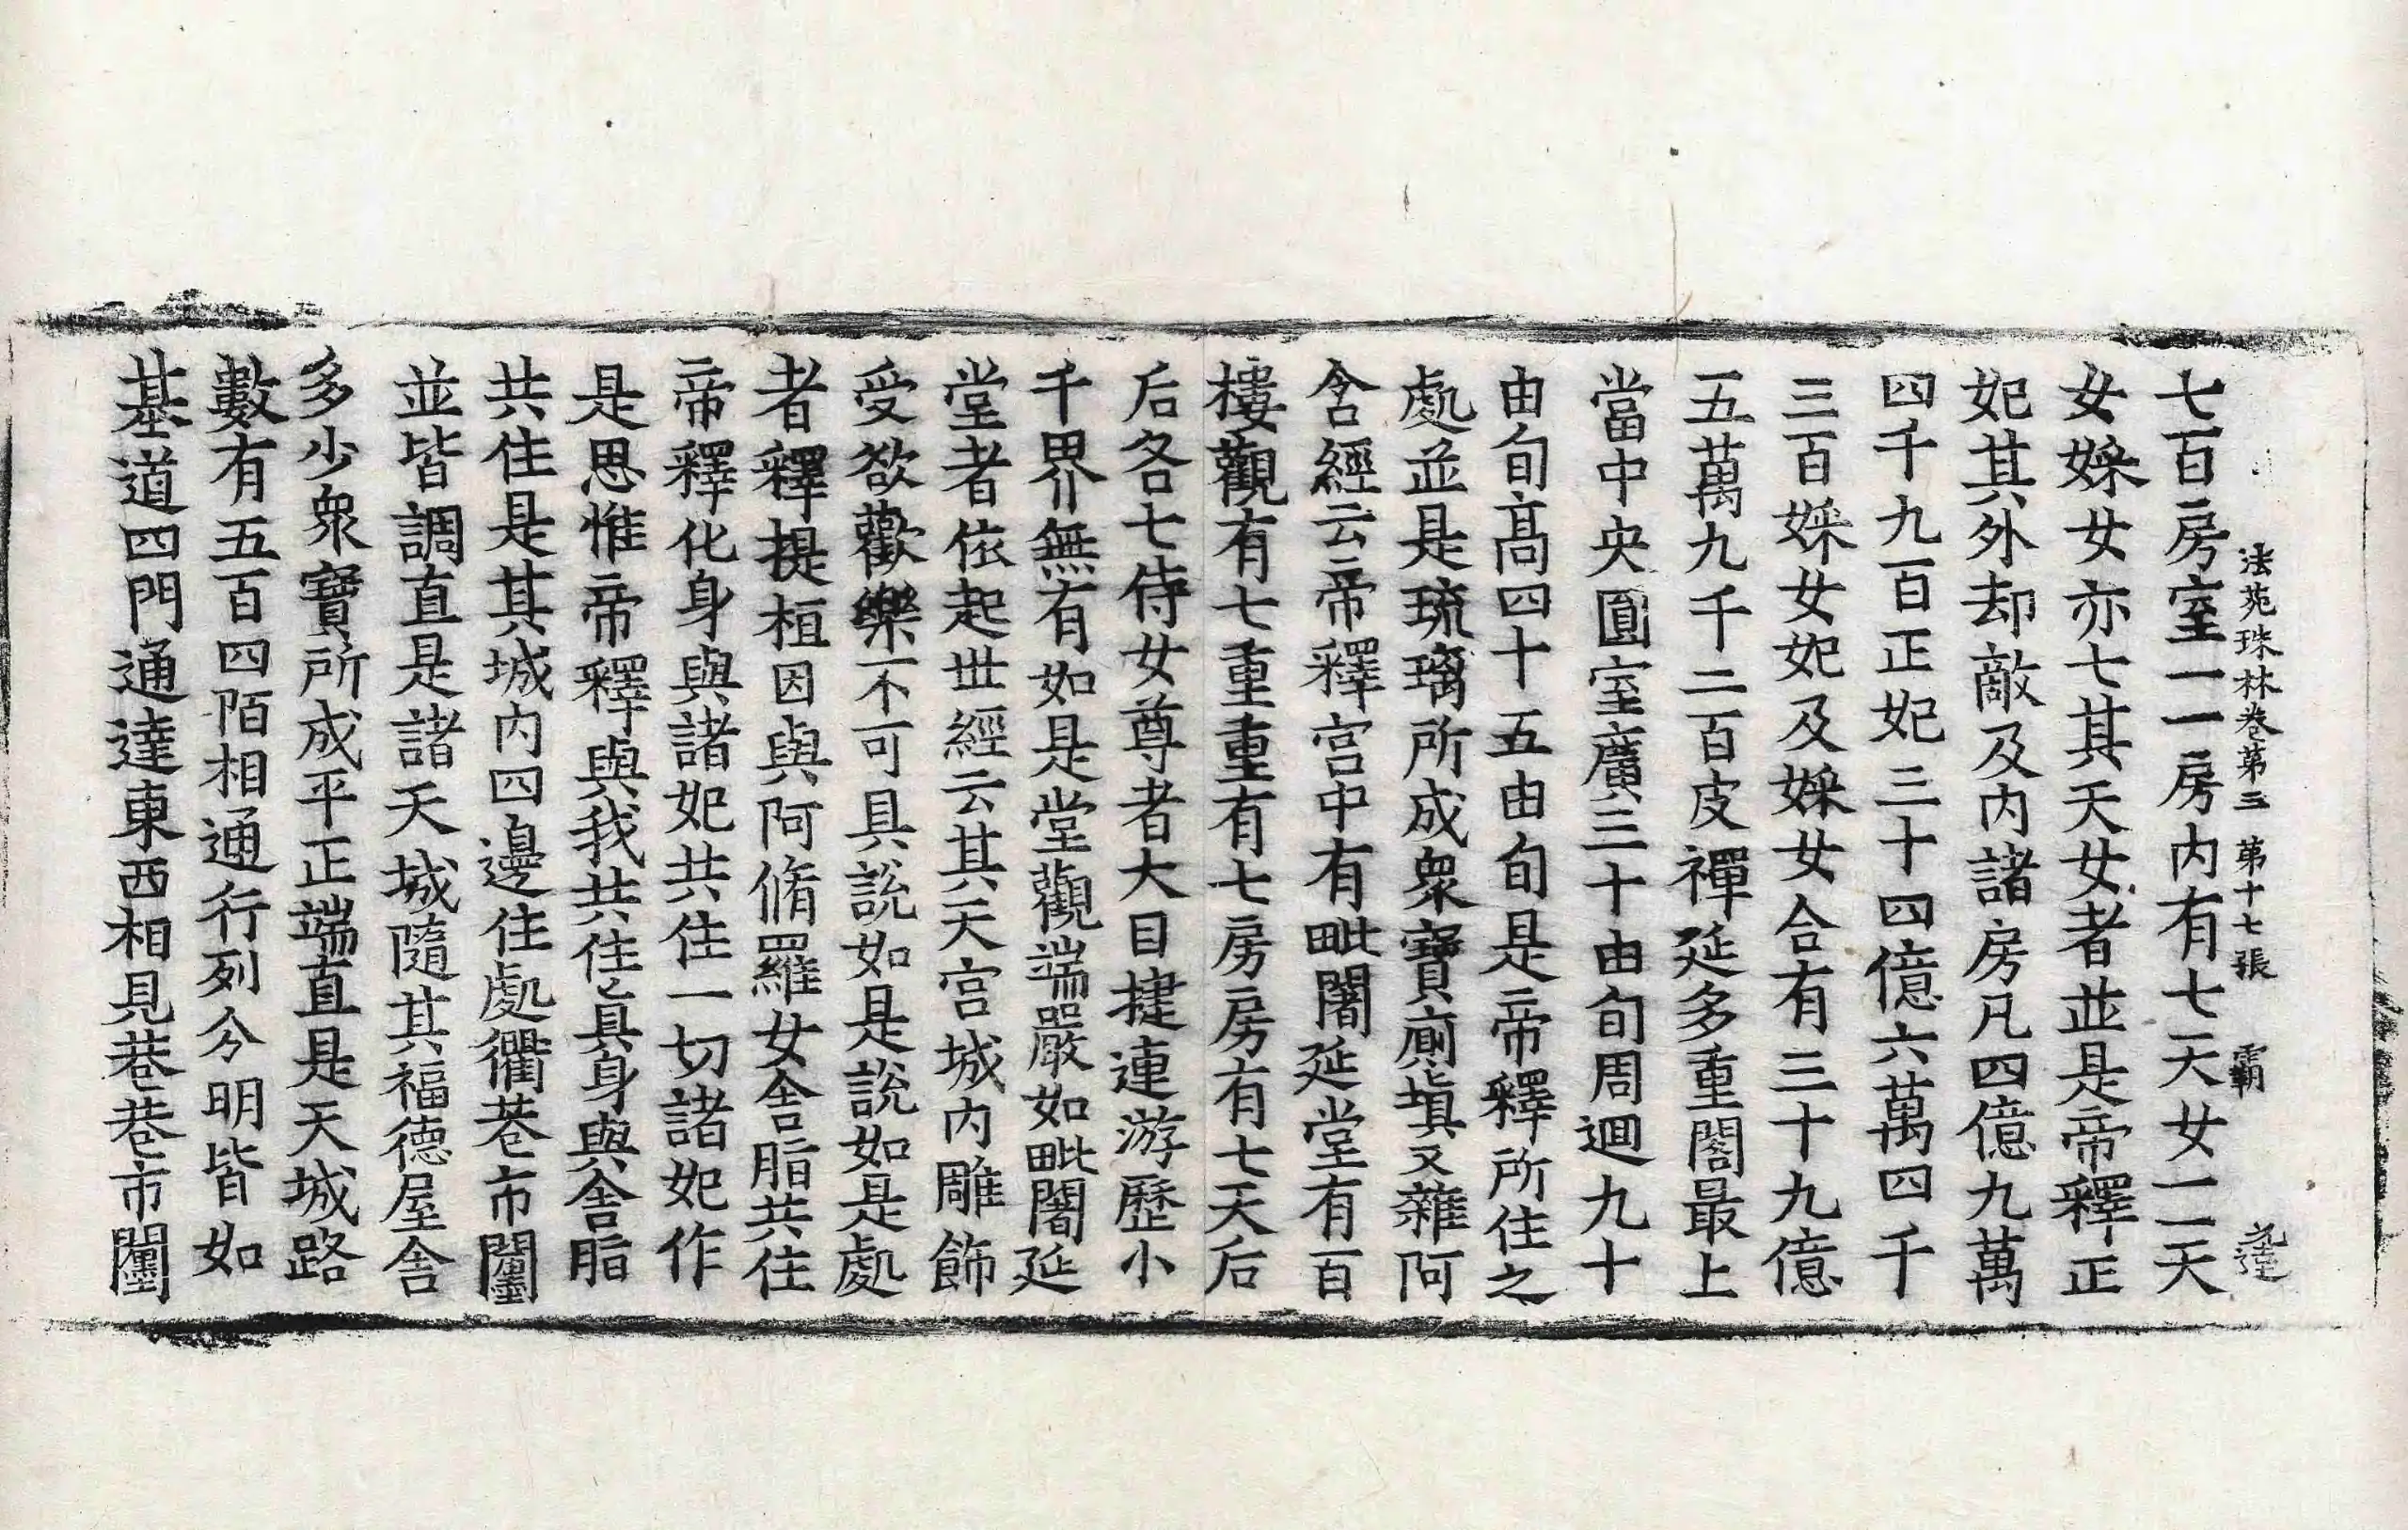 法苑珠林卷第三 第十七張 霸
七百房室一一房内有七天女一一天
女婇女亦七其天女者並是帝釋正
妃其外却敵及内諸房凡四億九萬
四千九百正妃三十四億六萬四千
三百婇女妃及婇女合有三十九億
五萬九千二百皮禪延多重閣最上
當中央圓室廣三十由旬周迴九十
由旬髙四十五由旬是帝釋所住之
處並是琉璃所成衆寶廁塡又雜阿
含經云帝釋宫中有毗闍延堂有百
樓觀有七重重有七房房有七天后
后各七侍女尊者大目揵連游歷小
千界無有如是堂觀端嚴如毗闍延
堂者依起世經云其天宫城内雕飾
受欲歡樂不可具說如是說如是處
者釋提桓因與阿脩羅女舍脂共住
帝釋化身與諸妃共住一切諸妃作
是思惟帝釋與我共住〻真身與舍脂
共住是其城内四邊住處衢巷市𨷲
並皆調直是諸天城隨其福德屋舍
多少衆寶所成平正端直是天城路
數有五百四陌相通行列分明皆如
基道四門通達東西相見巷巷市𨷲